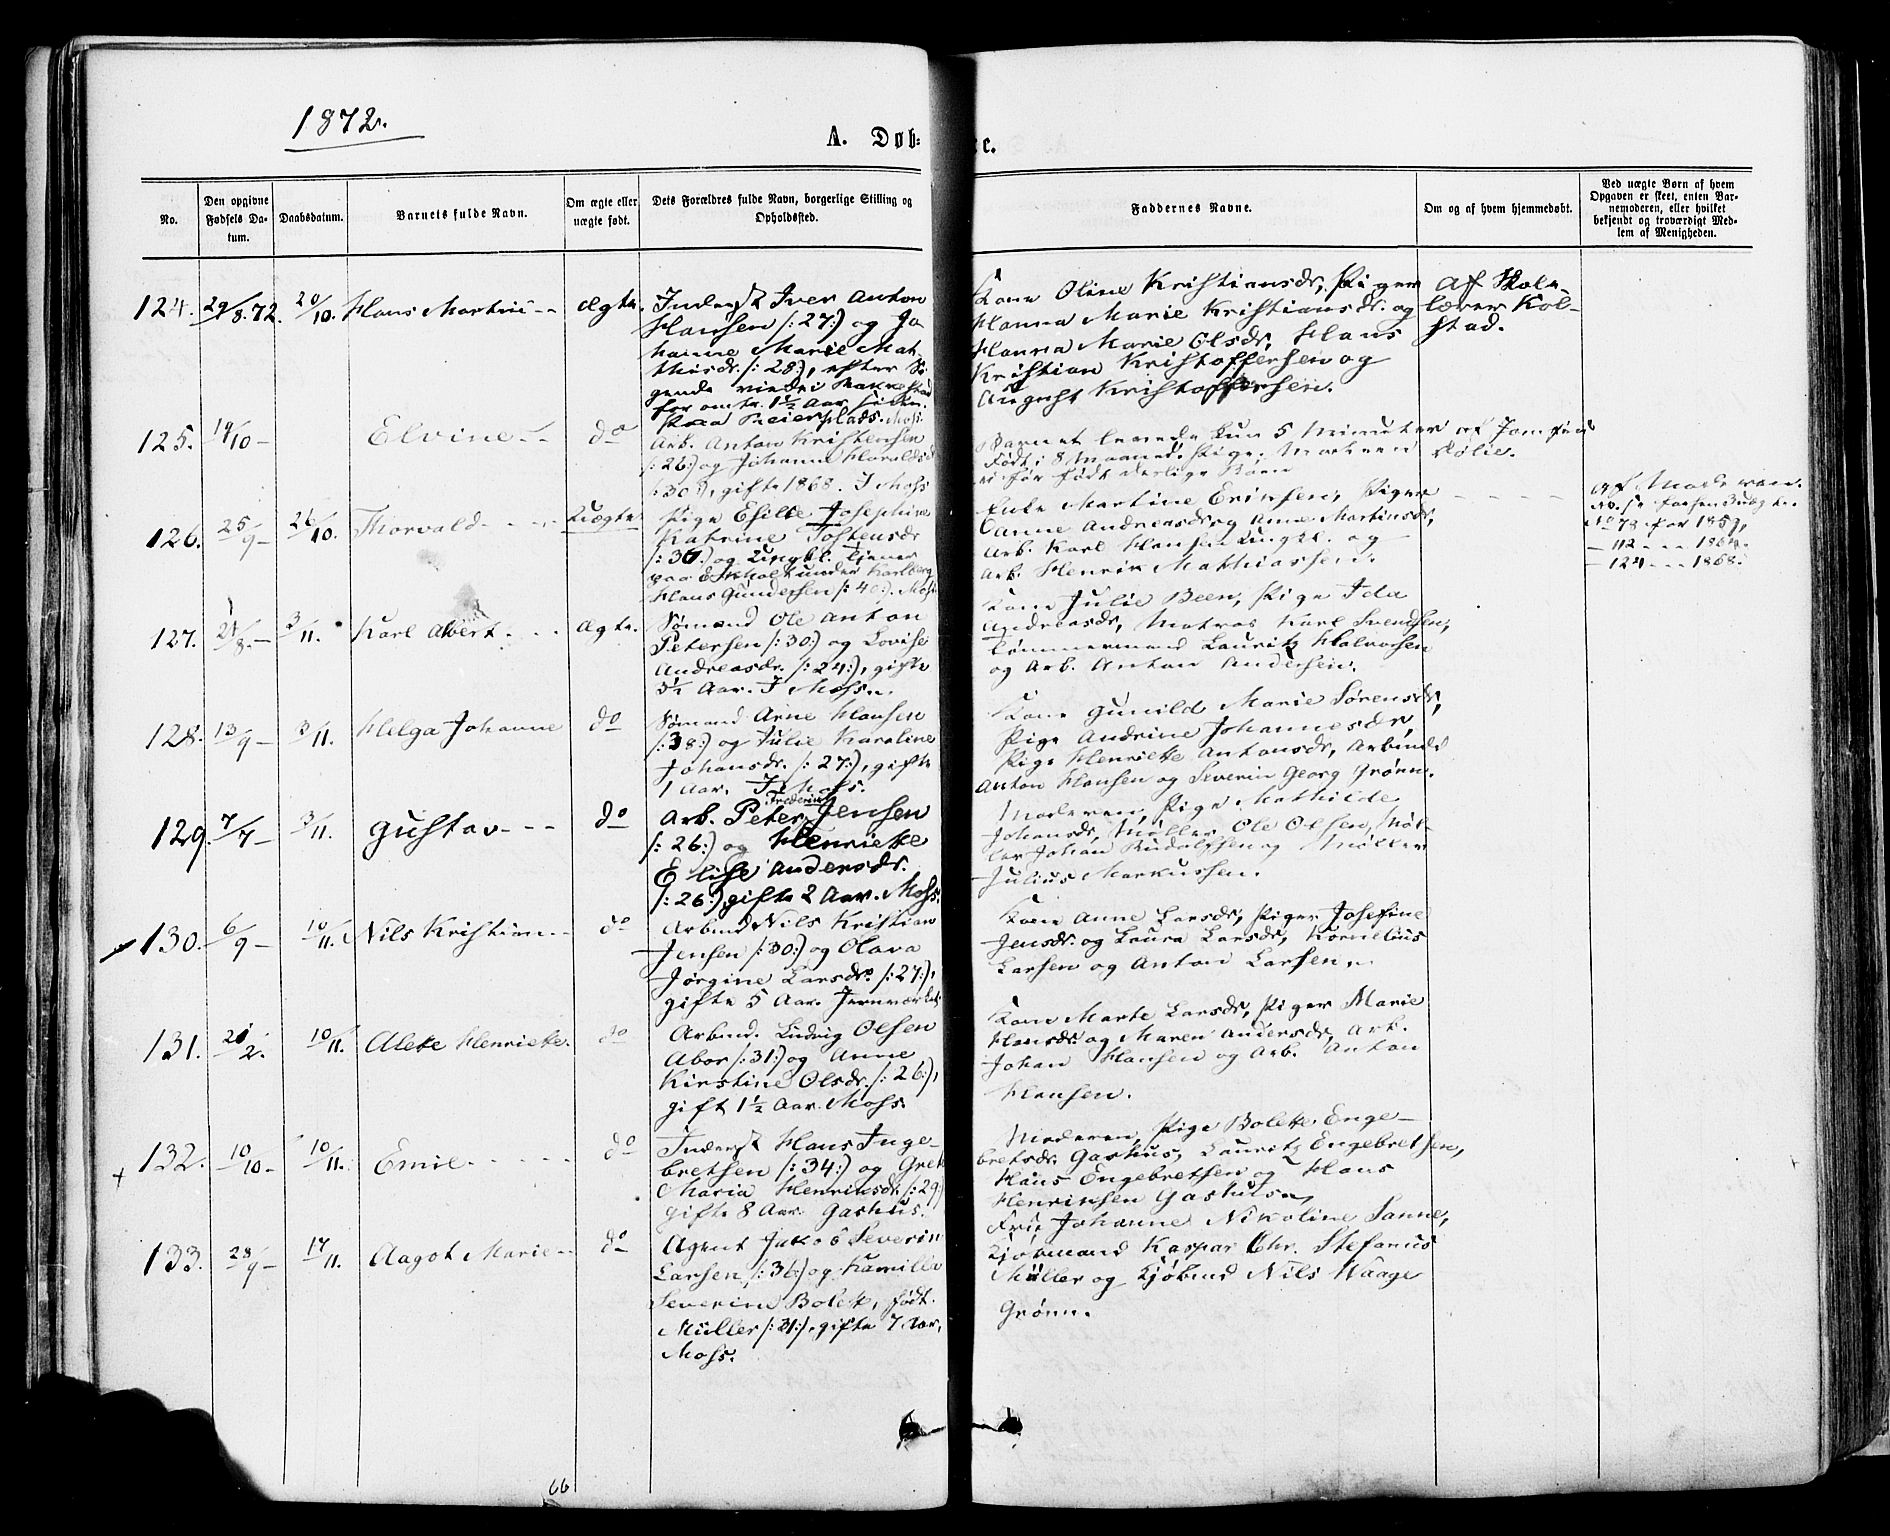 1872.
A. Døb-
te.
No.
Den opgivne
Fødsels Da-
tum.
Daabsdatum.
Barnets fulde Navn.
Om ægte eller
uægte født.
Dets Forældres fulde Navn, borgerlige Stilling og
Opholdssted.
Faddernes Navne.
Om og af hvem hjemmedøbt.
Ved uægte Børn af hvem
Opgaven er skeet, enten Bar-
nemoderen, eller hvilket
bekjendt og troværdigt Med-
lem af Menigheden.
124. 29/8.72. 20/10. Hans Martin -- Ægte.
Inderst Iver Anton
Hansen /:27:/ og Jo
hanne Marie Mat-
thisdr. /:28:/, efter Si
gende viede i
for omtr. 1½ Aar siden.
Moss.
Kone Oline Kristiansdr, Piger
Hanna Marie Kristiansdr. og
Hanna Marie Olsdr, Hans
Kristian Kristoffersen og
August Kristoffersen.
Af Skole-
lærer Kol-
stad.
125. 19/10 - Elvine -- do
Arb. Anton Kristensen
/:26:/ og Johanne Haraldsd
/:30:/, gifte 1868. I Moss
Barnet levede kun 5 Minuter
Født i 8 Maaned. Pige.
før født Børn
af Jomfru
126. 25/9 - 26/10. Thorvald - - - Uægte
Pige Josephine
Katrine Tostensdr
/:36:/ og Ungkl. Tjener
paa under Karlberg
Hans Gundersen /:40:/. Moss
Enke Martine Eriksen, Piger
Anne Andreasdr og Anne Martinsdr,
Arb. Karl Hansen Ungkl. og
Arb. Henrik Mathiassen.
Af Moderen.
No 78 for 1859,
- 112 - - 1864.
- 124 - - 1868.
127. 21/8. - 3/11. Karl Albert - - - Ægte.
Sømand Ole Anton
Petersen /:30:/ og Lovise
Andreasdr. /:24:/, gifte
3½ Aar. I Moss.
Kone Julie Been, Pige Ida
Andreasdr, Matros Karl Svendsen,
Tømmermand Lauritz Halvorsen
og Arb. Anton Andersen.
128. 13/9 - 3/11. Helga Johanne do
Sømand Arne Hansen
/:38:/ og Julie Karoline
Johansdr. /:27:/, gifte
1 Aar. I Moss.
Kone Gunild Marie Sørensdr,
Pige Andrine Johannesdr,
Pige Henriette Antonsdr, Arbmd
Anton Hansen og Severin Georg Grønn.
129. 7/7 - 3/11. Gustav - - - do
Frederik
Arb. Peter Jensen
/:26:/ og Henriette
Elise Andersdr.
/:26:/ gifte 2 Aar. Moss.
Moderen, Pige Mathilde
Johansdr, Møller Ole Olsen, Møl-
ler Johan Rudolfsen og Møller
Julius Markussen.
130. 6/9 - 10/11. Nils Kristian - - do
Arbmd Nils Kristian
Jensen /:30:/ og Olava
Jørgine Larsdr. /:27:/,
gifte 5 Aar. Jernværket
Kone Anne Larsdr, Piger Josefine
Jensdr. og Laura Larsdr, Kornelius
Larsen og Anton Larsen.
131. 2. 10/11. Alette Henriette. do
Arbmd. Ludvig Olsen
Abor /:31:/ og Anne
Kirstine Olsdr. /:26:/,
gift 1½ Aar. Moss.
Kone Marte Larsdr, Piger Marie
Hansdr og Maren Andersdr, Arb.
Johan Hansen og Arb. Anton
Hansen.
132. 10/10 - 10/11. Emil - - - - do
Inderst Hans Inge-
bretsen /:34:/ og Grete
Maria Henriksdr /:29:/
gifte 8 Aar. Gashus.
Moderen, Pige Bolette Enge-
bretsdr. Gashus, Lauritz Engebretsen,
Hans Engebretsen og Hans
Henriksen Gashus.
133. 23/9 - 17/11. Aagot Marie -- do
Agent Jakob Severin
Larsen /:36:/ og Kamilla
Severine Bolette, født
Müller /:31:/, gifte 7 Aar,
Moss.
Johanne Nikoline Sanne,
Kjøbmand Kaspar Chr. Stefanus
Müller og Kjøbmd Nils Waage
Grønn.
66